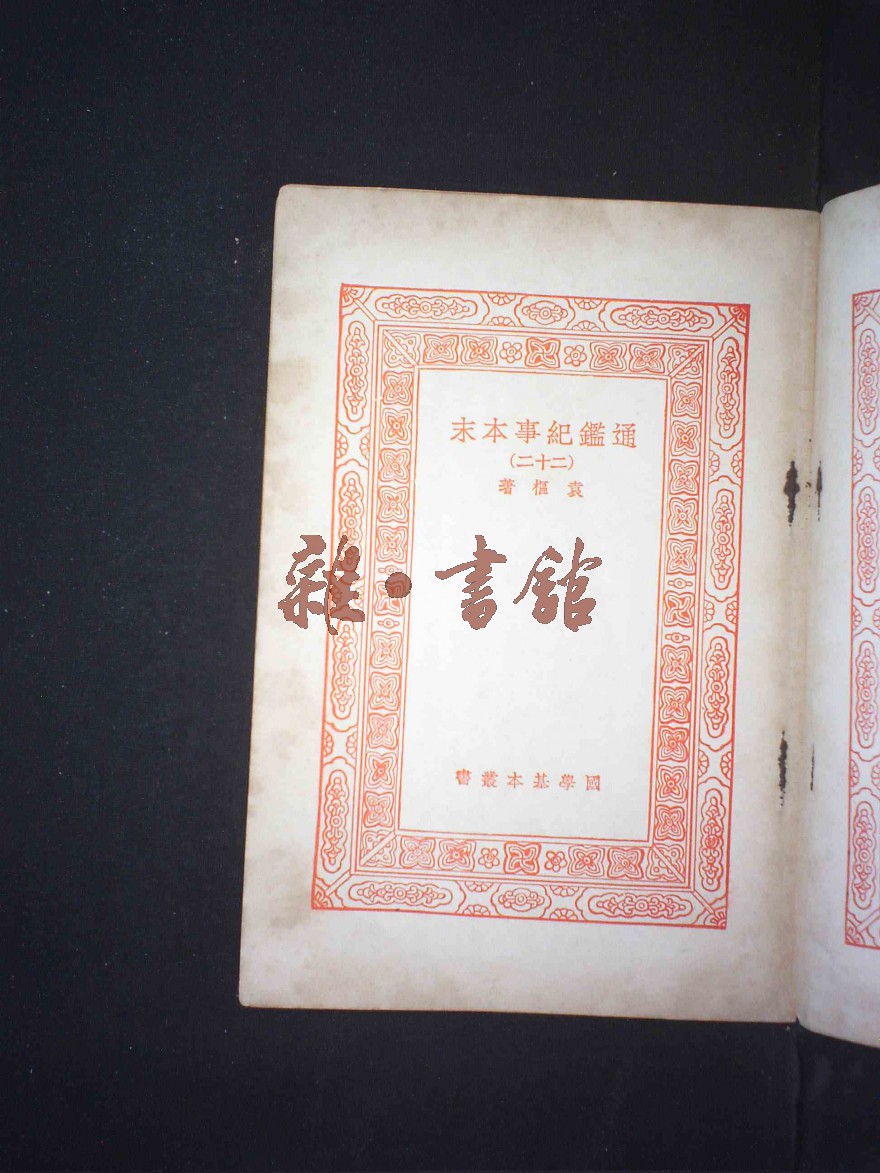 通鑑紀事本末
(二十二)
袁樞著
雜·書館
國學基本叢書